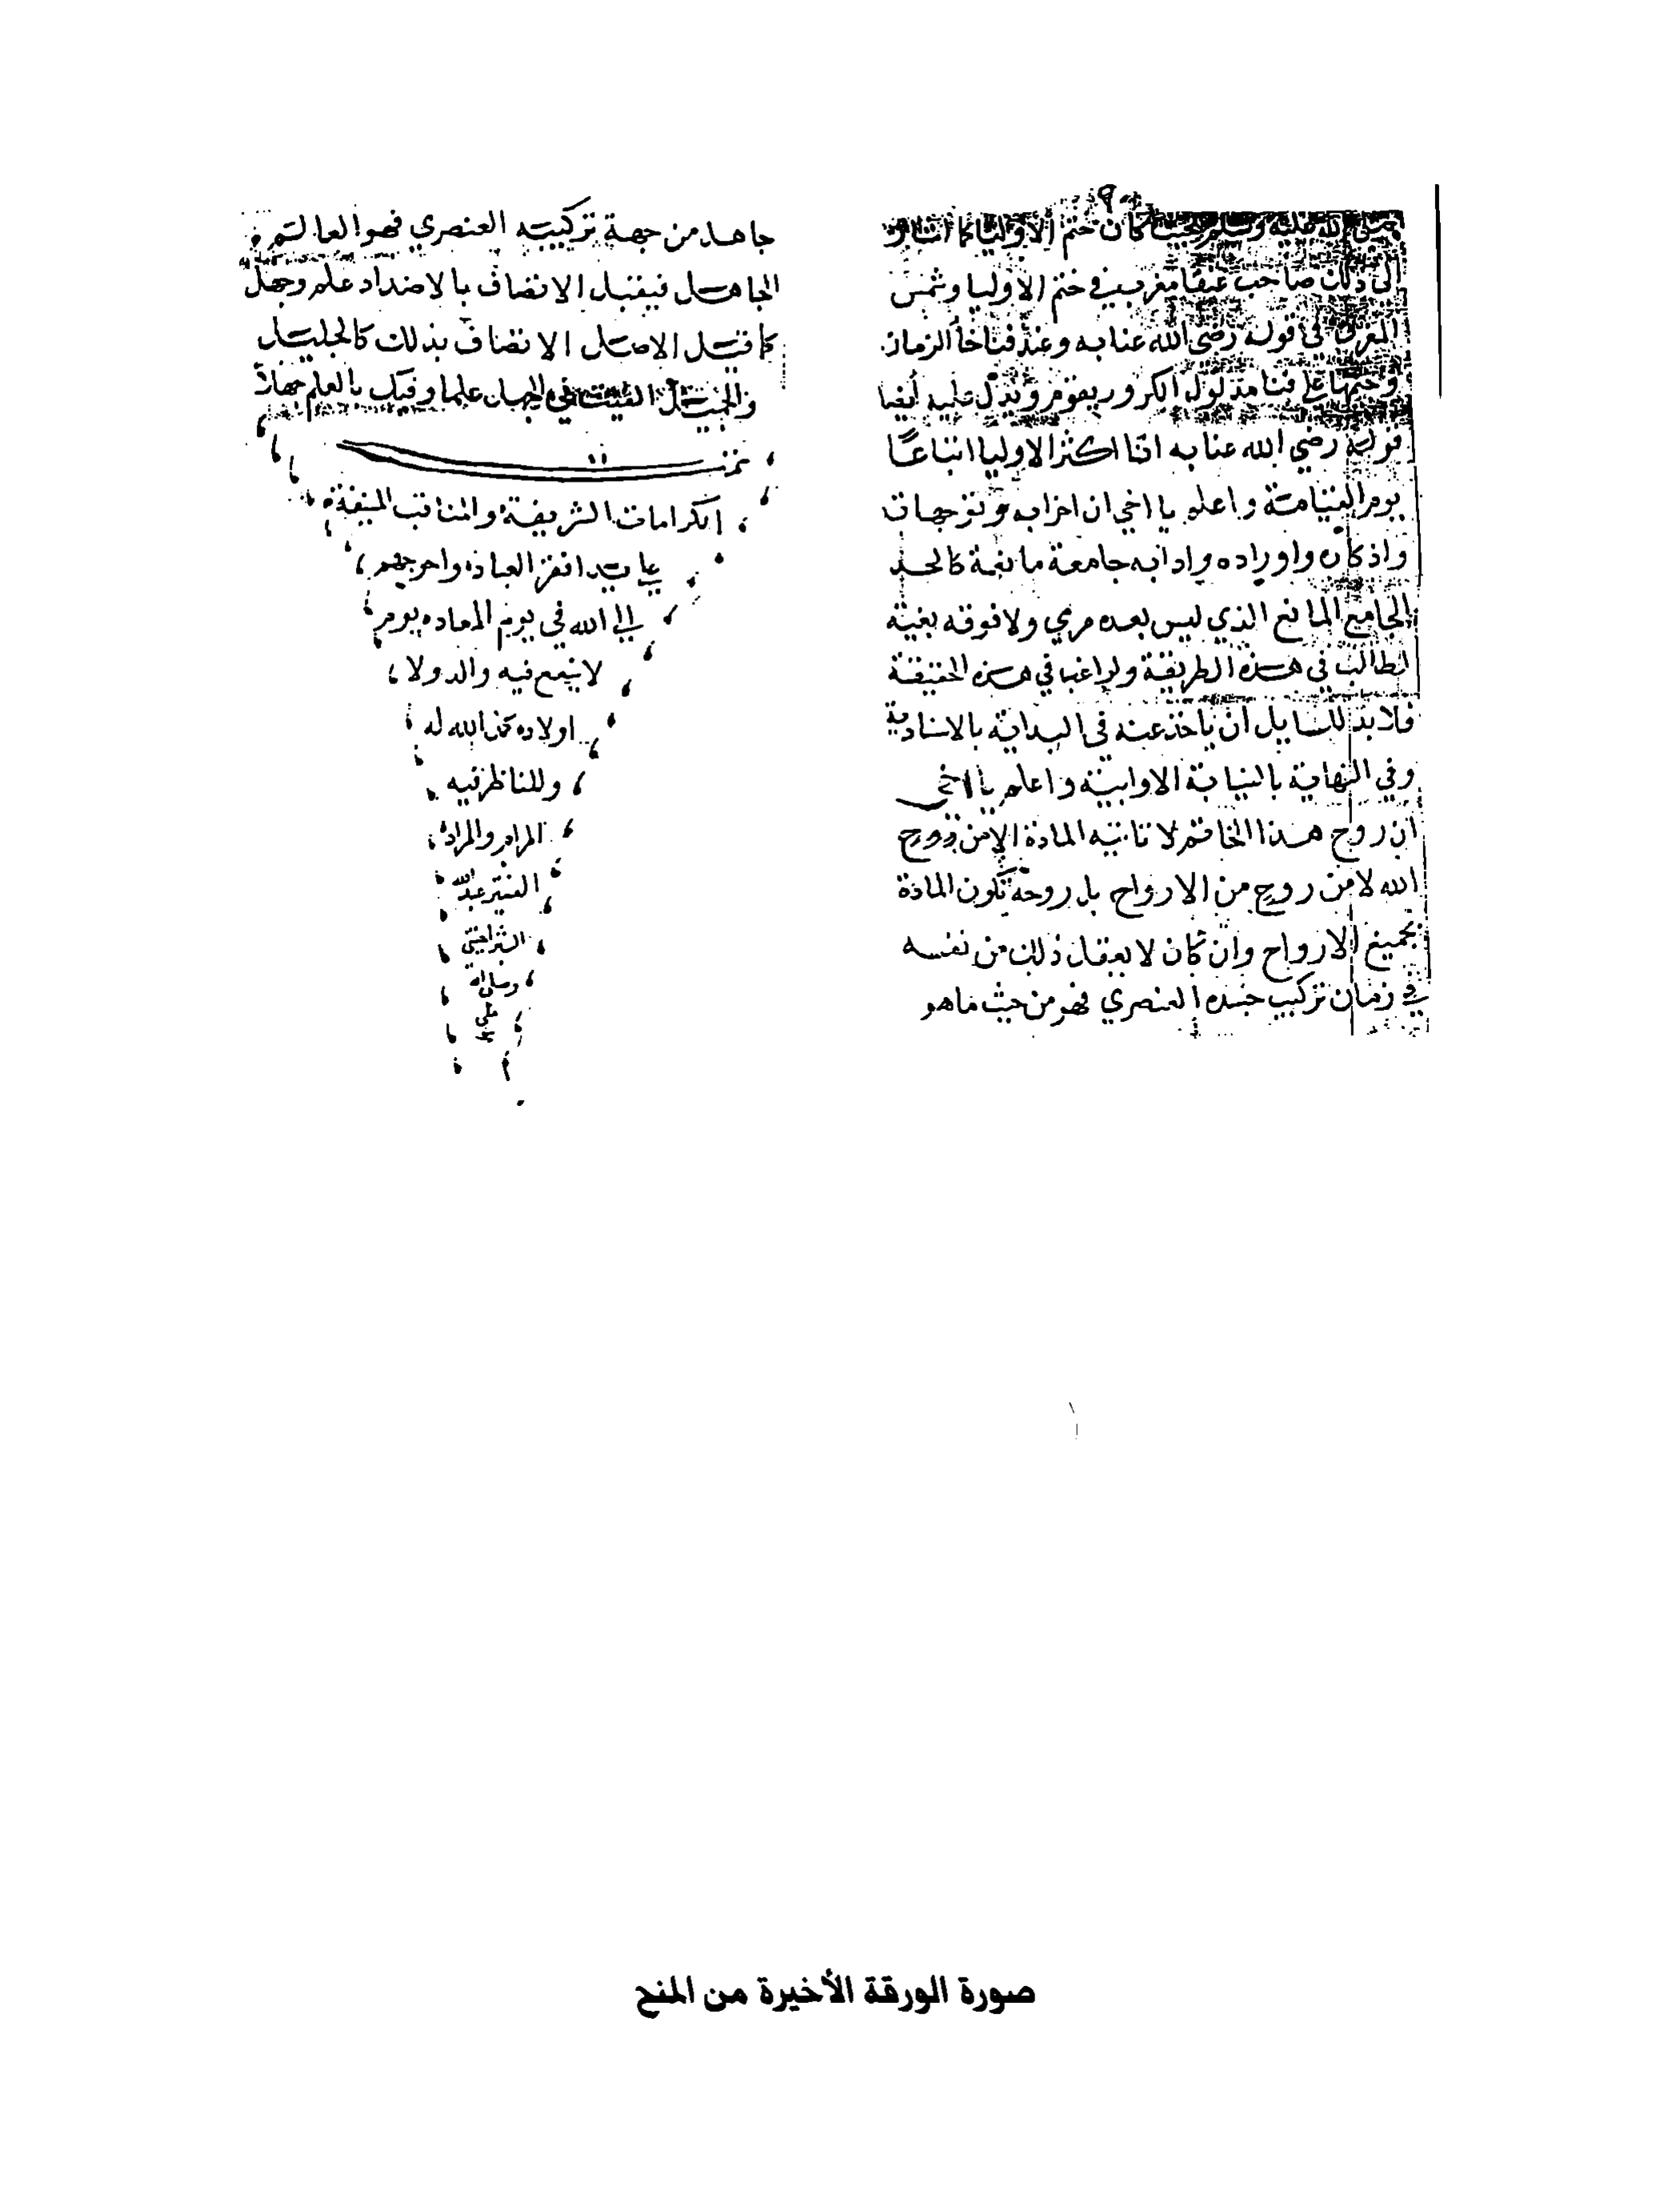 صلى الله عليه وسلم كان ختم الأوليا كما أشار
الى ذلك صاحب عنقا مغرب في ختم الاوليا وشمس
المغرب في قوله رضي الله عنا به وعند فنا خأ الزمان
وختمها على فنا مدلول الكرور يقوم ويدل عليه أيضا
قوله رضي الله عنا به انا اكثر الاوليا اتباعًا
يوم القيامة واعلم يا اخي ان احزابه وتوجهات
واذكاره واوراده وادابه جامعة مانعة كالحد
الجامع المانع الذي ليس بعده مرمي ولا فوقه بغية
لطالب في هذه الطريقة ولراغب في هذه الحقيقة
فلا بد للسايل أن ياخذ عنه في البداية بالاستادية
وفي النهاية بالنيابة الاوابية واعلم يا اخي
ان روح هذا الخاتم لا تاتيه المادة الا من روح
الله لا من روح من الارواح بل روحه تكون المادة
بجميع الارواح وان كان لا يعقل ذلك من نفسه
في زمان تركيب جسده العنصري فهو من حيث ما هو
جاهل من جهة تركيبه العنصري فهو العالم
الجاهل فيقبل الاتصاف بالاضداد علم وجهل
كما قبل الاصل الاتصاف بذلك كالجليل
والجميل في الجهل علما وفيك بالعلم جهلا
تمت
الكرامات الشريفة والمناقب المنيفة
على يد افقر العباد واحوجهم
الى الله في يوم المعاد يوم
لا ينفع فيه والد ولا
اولاده غفر الله له
وللناظر فيه
المرام والمراد
الفقير عبد الله
وصلى الله
على
صورة الورقة الأخيرة من المنح